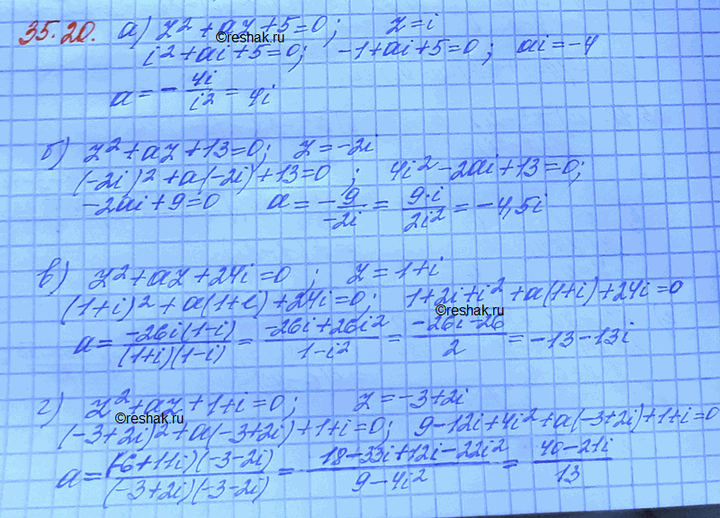 35.20. а) z² + az + 5 = 0; z = i
i² + ai + 5 = 0; -1 + ai + 5 = 0; ai = -4
a = - 4i/i² = 4i
б) z² + az + 13 = 0; z = -2i
(-2i)² + a(-2i) + 13 = 0; 4i² - 2ai + 13 = 0;
-2ai + 9 = 0 a = -9/-2i = 9·i/2i² = -4,5i
в) z² + az + 24i = 0; z = 1 + i
(1+i)² + a(1+i) + 24i = 0; 1 + 2i + i² + a(1+i) + 24i = 0
a = -26i(1-i)/(1+i)(1-i) = -26i+26i²/1-i² = -26i-26/2 = -13-13i
г) z² + az + 1 + i = 0; z = -3 + 2i
(-3+2i)² + a(-3+2i) + 1 + i = 0; 9 - 12i + 4i² + a(-3+2i) + 1 + i = 0
a = (-6+11i)(-3-2i)/(-3+2i)(-3-2i) = 18-33i+12i-22i²/9-4i² = 40-21i/13
©reshak.ru
©reshak.ru
©reshak.ru